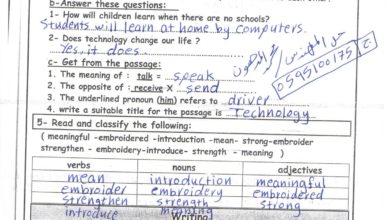 b-Answer these questions:
1- How will children learn when there are no schools?
Students will learn at home by Computers.
2- Does technology change our life ?
Yes, it does
c- Get from the passage:
1. The meaning of : talk = speak
2. The opposite of : receive X send
3. The underlined pronoun (him) refers to driver
4. write a suitable title for the passage is Technology
0595100175
5- Read and classify the following:
( meaningful -embroidered -introduction -mean- strong-embroider
strengthen - embroidery-introduce- strength - meaning )
verbs nouns adjectives
mean introduction meaningful
embroider embroidery embroidered
strengthen strength strong
introduce meaning
Writing